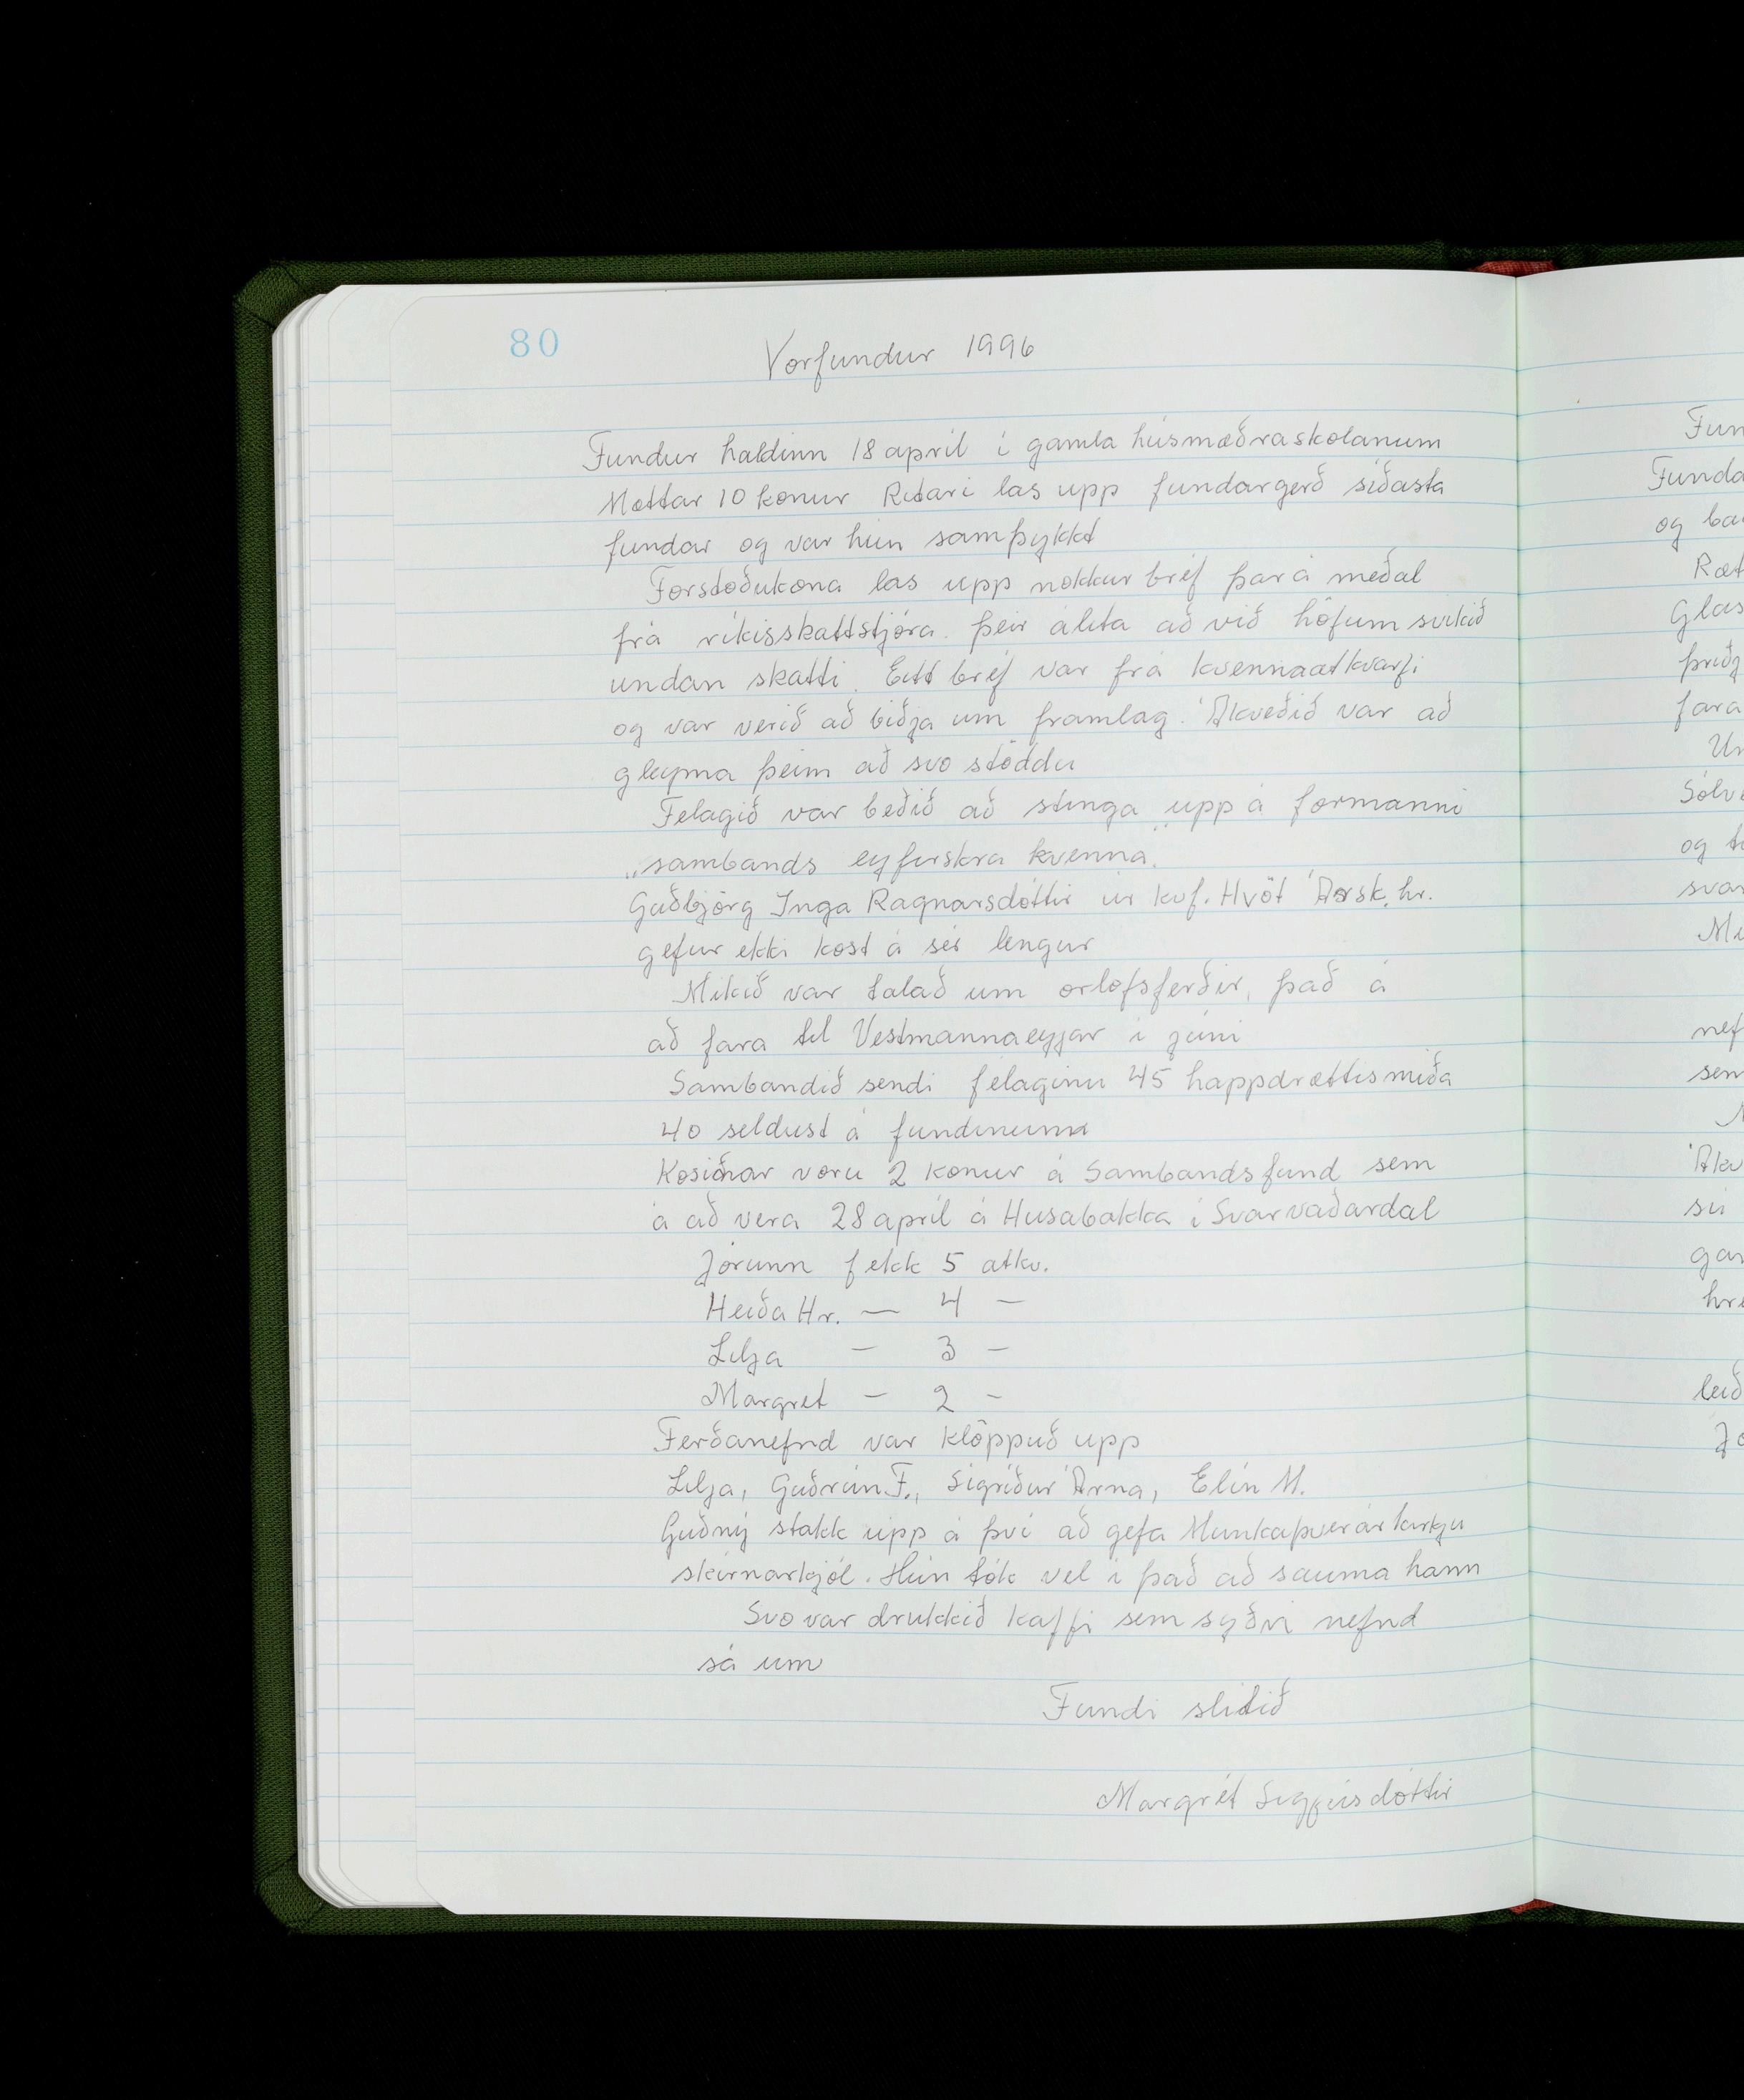 80
Vorfundur 1996
Fundur haldinn 18 apríl í gamla húsmæðraskólanum
Mættar 10 konur Ritari las upp fundargerð síðasta
fundar og var hún samþykkt
Forstöðukona las upp nokkur bréf þar á meðal
frá ríkisskattstjóra. Þeir álíta að við höfum svikið
undan skatti. Eitt bréf var frá kvennaatkvarfi
og var verið að biðja um framlag. Ákveðið var að
gleyma þeim að svo stöddu
Felagið var beðið að stinga upp á formanni
„sambands eyfirskra kvenna.
Guðbjörg Inga Ragnarsdóttir úr kvf. Hvöt Ársk. hr.
gefur ekki kost á sér lengur
Mikið var talað um orlofsferðir, það á
að fara til Vestmannaeyjar í júní
Sambandið sendi félaginu 45 happdrættismiða
40 seldust á fundinum
Kosnar voru 2 konur á Sambandsfund sem
á að vera 28 apríl á Husabakka í Svarvaðardal
Jórunn fekk 5 atkv.
Heiða Hr. — 4 —
Lilja — 3 —
Margret — 2 —
Ferðanefnd var klöppuð upp
Lilja, Guðrún F., Sigríður Árna, Elín M.
Guðný stakk upp á því að gefa Munkaþverárkirkju
skírnarkjól. Hún tók vel í það að sauma hann
Svo var drukkið kaffi sem syðri nefnd
sá um
Fundi slitið
Margrét Sigfúsdóttir
Fun
Funda
og ba
Ræt
Glas
þriðj
fara
Un
Sölv
og t
svar
Mi
nef
sem
Ákv
sú
gar
hre
leið
Jó